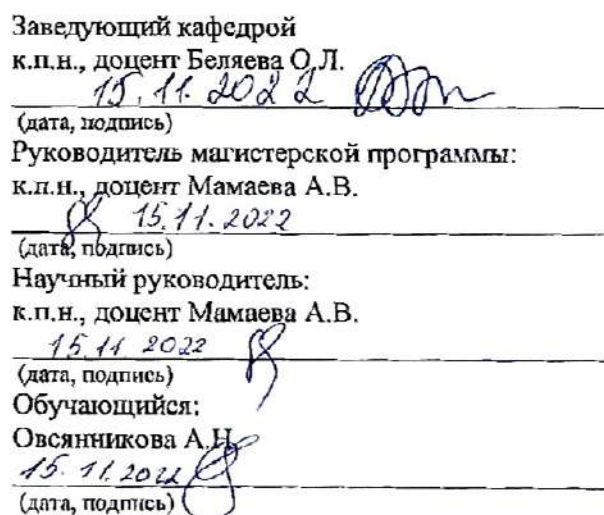 Заведующий кафедрой
к.п.н., доцент Беляева О.Л.
15.11.2022
(дата, подпись)
Руководитель магистерской программы:
к.п.н., доцент Мамаева А.В.
15.11.2022
(дата, подпись)
Научный руководитель:
к.п.н., доцент Мамаева А.В.
15.11 2022
(дата, подпись)
Обучающийся:
Овсянникова А.Н.
15.11.2022
(дата, подпись)